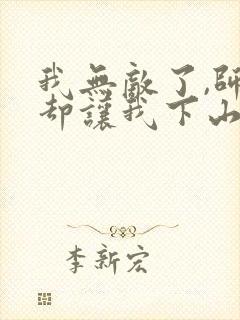 我無敵了,師
卻讓我下山
李新宏